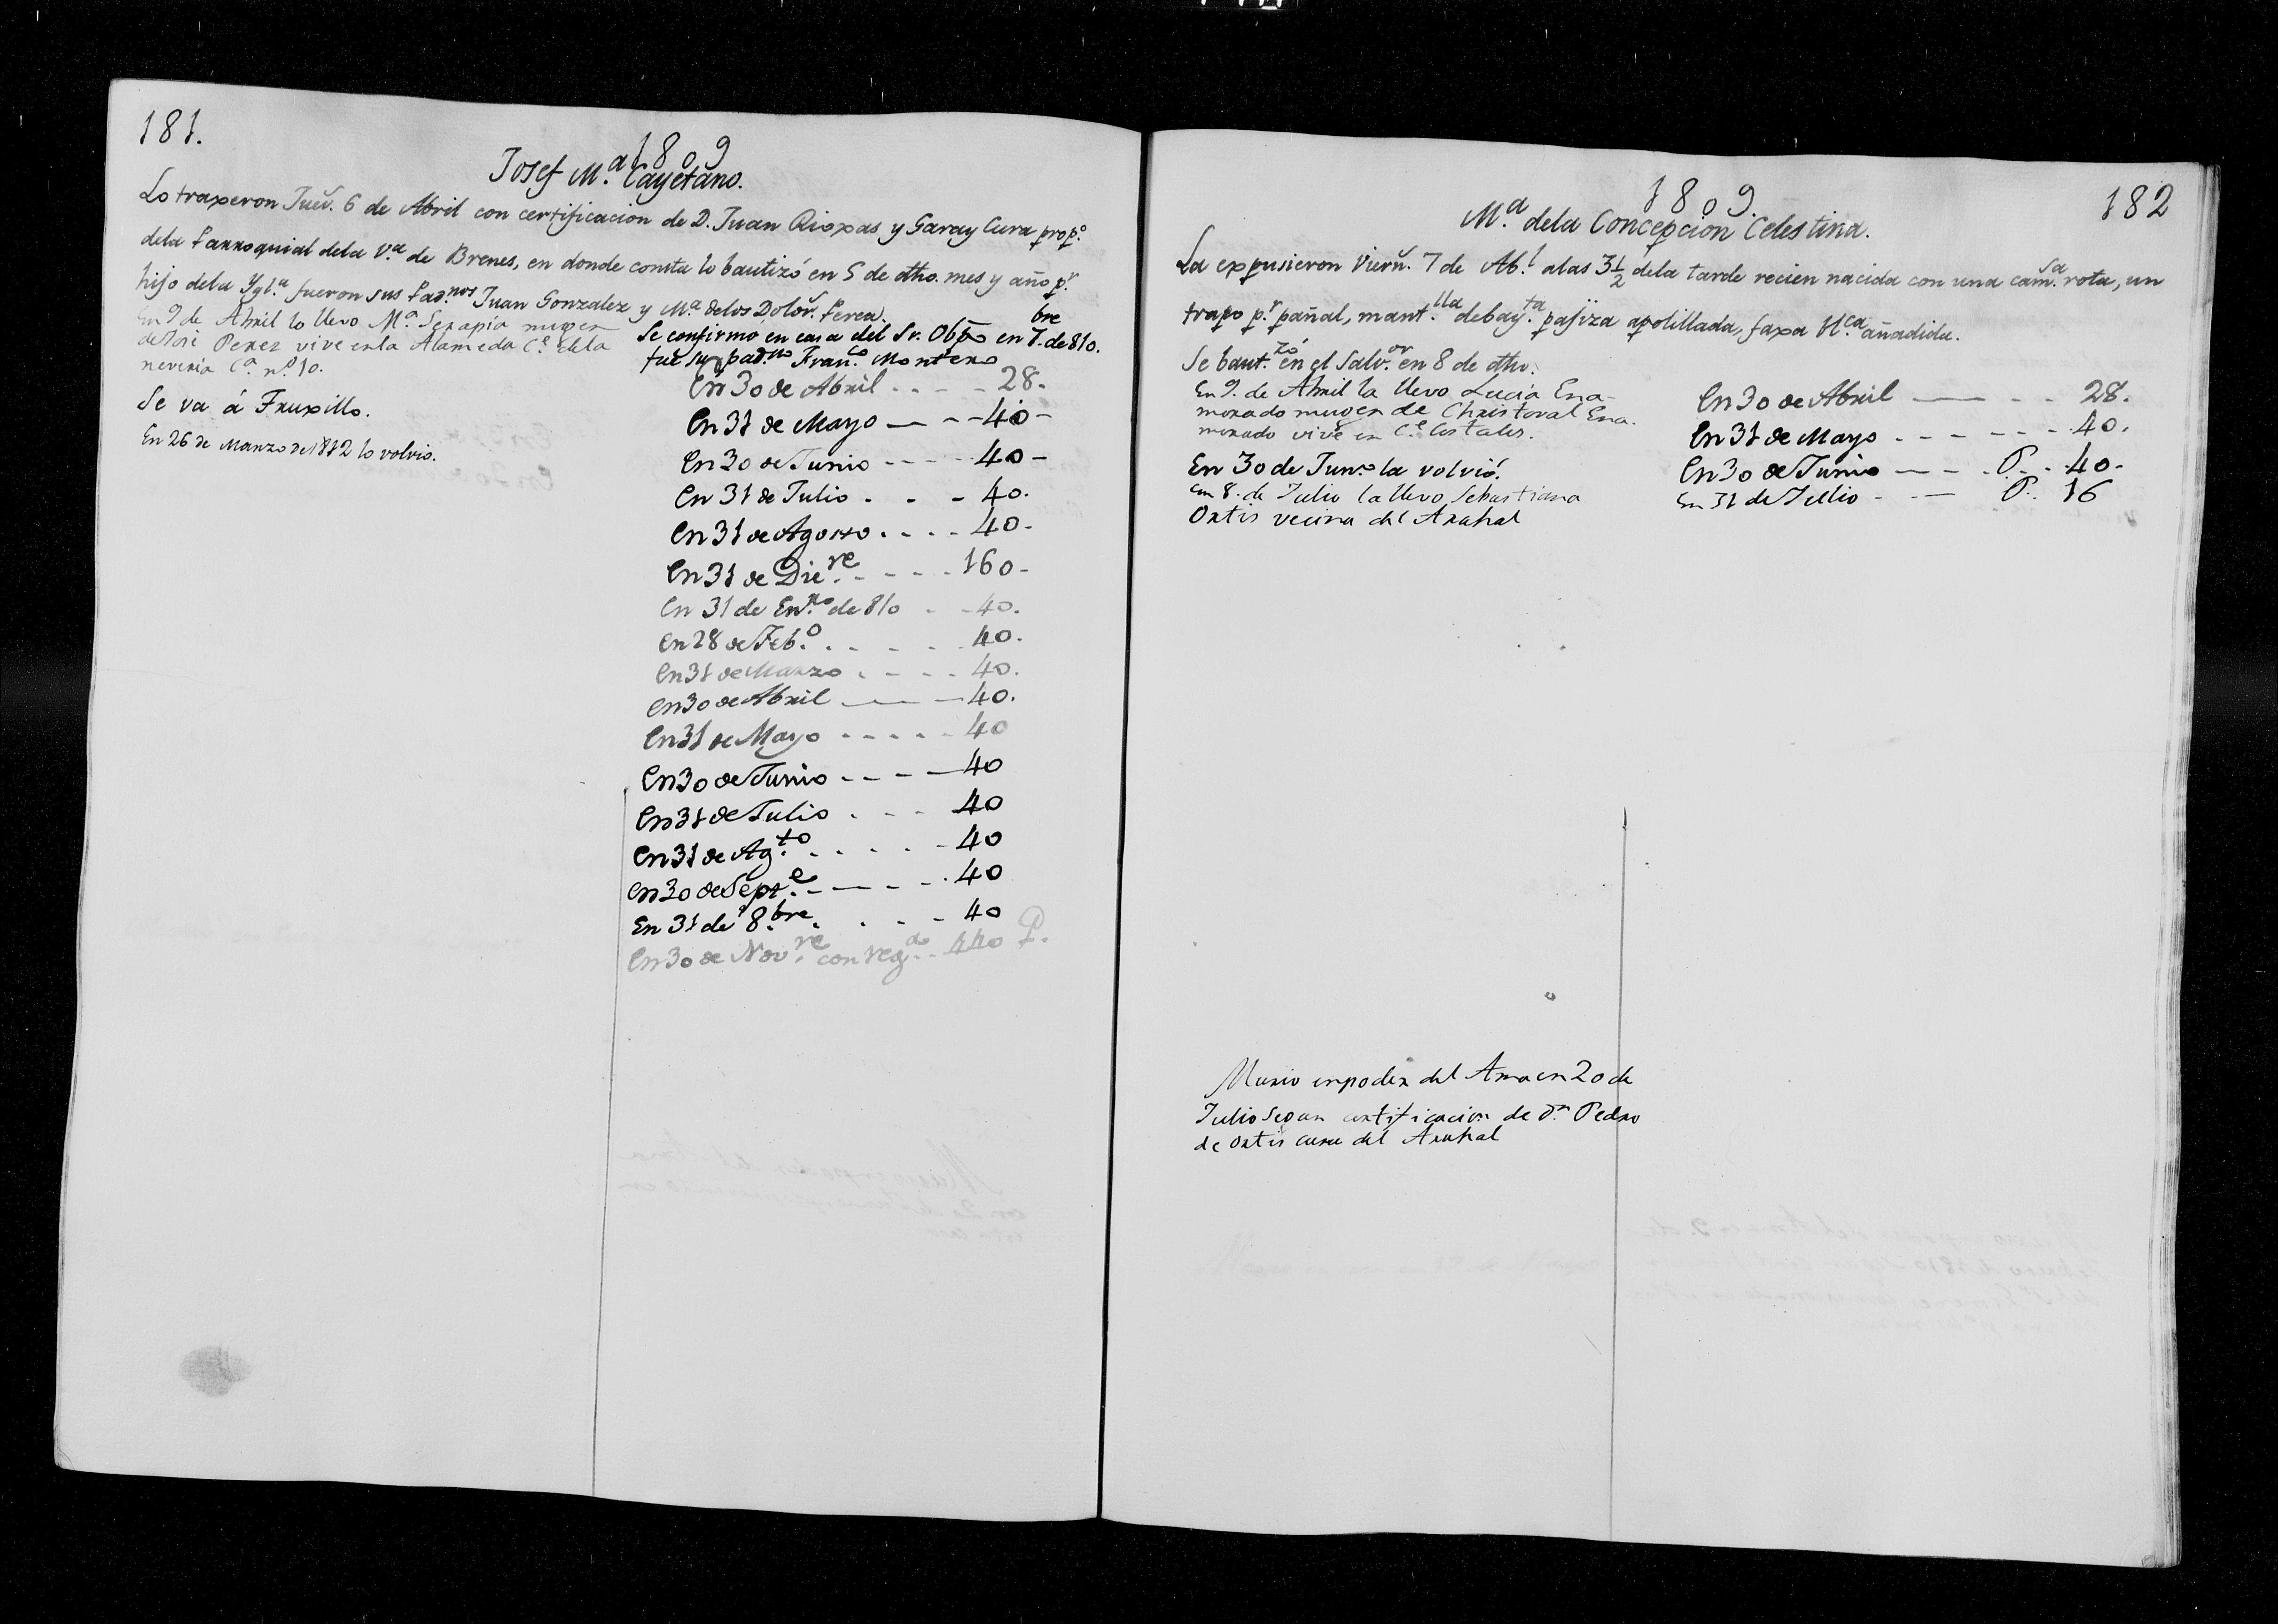 181.
1809
Josef M.ª Cayetano.
Lo traxeron Juev. 6 de Abril con certificacion de D. Juan Rioxas y Garay Cura prop.º
dela Parroquial dela V.ª de Brenes, en donde consta lo bautizó en 5 de dho. mes y año p.r
hijo dela Ygl.ª fueron sus Pad.nos Juan Gonzalez y M.ª delos Dolor. Perea.
En 9 de Abril lo llevo M.ª Serapia muger
de José Perez vive enla Alameda C.e dela
neveria C.ª n.º 10.
Se va á Truxillo.
En 26 de Marzo de 1812 lo volvio.
Se confirmo en casa del Sr. Obpo en 7.bre de 810.
fue su pad.no Fran.co Montero
En 30 de Abril . - - - 28.
En 31 de Mayo - - - 40 -
En 30 de Junio - - - - 40 -
En 31 de Julio . - - 40.
En 31 de Agosto . - - - 40 -
En 31 de Die.re - - - - 160 -
En 31 de En.ro de 810 - - 40.
En 28 de Feb.o . - - - 40.
En 31 de Marzo . - - - 40.
En 30 de Abril - - - 40.
En 31 de Mayo - - - - 40
En 30 de Junio - - - - 40
En 31 de Julio . - - 40
En 31 de Ag.to . - - - 40
En 30 de Sept.e - - - - 40
En 31 de 8.bre . - - - 40
En 30 de Nov.re con reg.do - 440 P.
182
1809.
M.ª dela Concepcion Celestina.
La expusieron Viern. 7 de Ab.l alas 3 1/2 dela tarde recien nacida con una cam.sa rota, un
trapo p.r pañal, mant.lla debay.ta pajiza apolillada, faxa H.ca añadida.
Se baut.zó en el Salv.or en 8 de dho.
En 9. de Abril la llevo Lucia Ena-
morado muger de Christoval Ena-
morado vive en C.e Costales.
En 30 de Jun.o la volvió.
En 8. de Julio la llevo Sebastiana
Ortis vecina del Arahal
En 30 de Abril - - - 28.
En 31 de Mayo - - - - - 40.
En 30 de Junio - - - P. - 40.
En 31 de Julio - - - P. 16
Murio enpoder del Ama en 20 de
Julio segun certificacion de D.n Pedro
de Ortis cura del Arahal